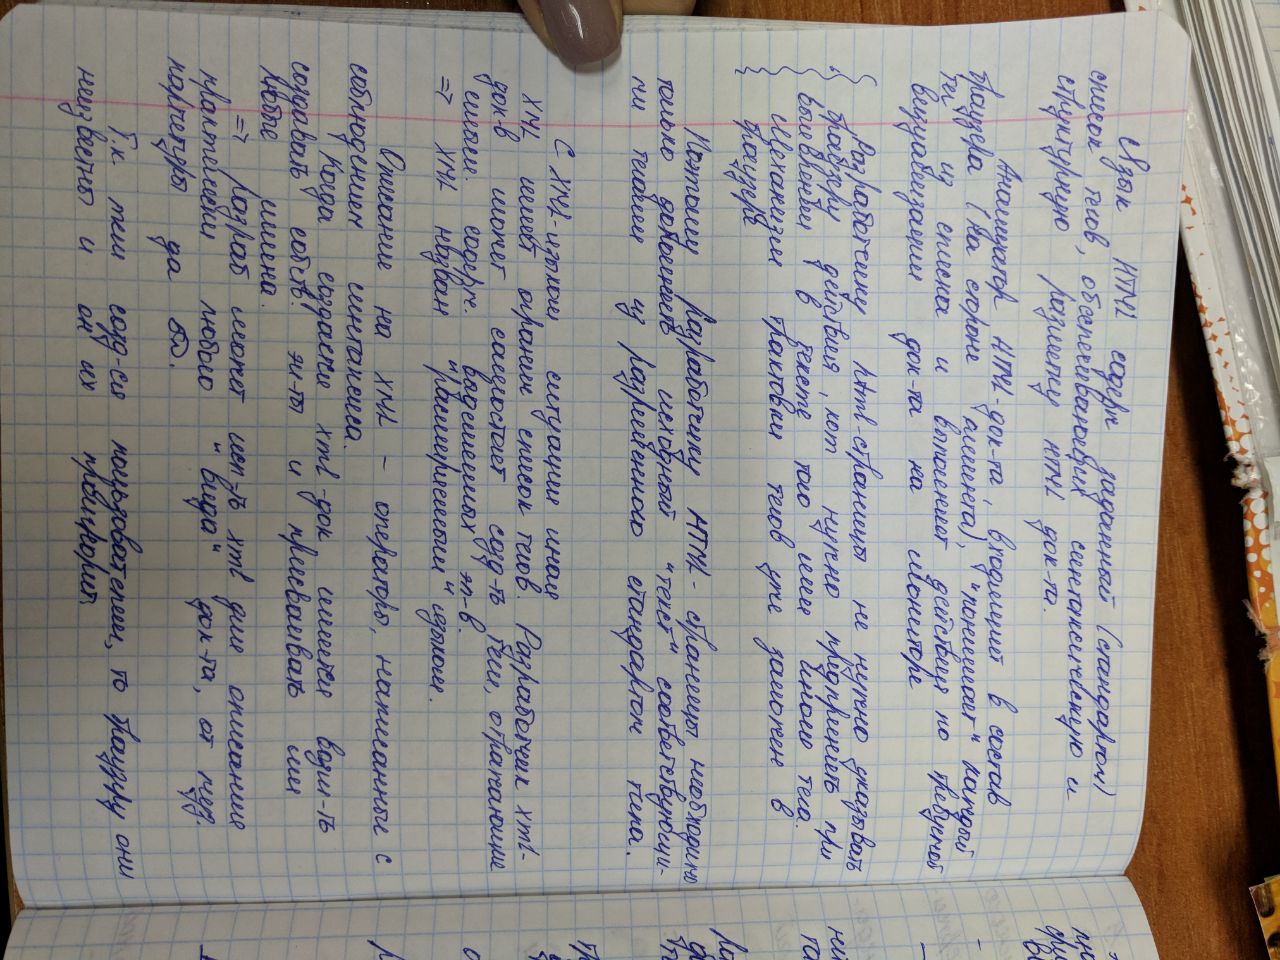 Язык HTML содерж заданный (стандартом)
список тегов, обеспечивающих синтаксическую и
структурную разметку HTML док-та.
Анализатор HTML-док-та, входящий в состав
браузера (на стороне клиента), "понимает" каждый
тег из списка и выполняет действия по требуемой
визуализации док-та на мониторе
Разработчику html-страницы не нужно указывать
браузеру действия, кот нужно предпринять при
выявлении в тексте того или иного тега.
Механизм трактовки тегов уже заложен в
браузере
Поэтому разработчику HTML-страницы необходимо
только дополнить исходный "текст" соответствующи-
ми тегами из разрешенного стандартом типа.
С XML-языком ситуация иная
XML имеет ограни список тегов. Разработчик xml-
док-в может самостоят созд-ть теги, отражающие
смысл. содерж. вводимых эл-в.
=> XML назван "расширяемым" языком.
Описание на XML - операторы, написанные с
соблюдением синтаксиса.
Когда создается xml-док имеется возм-ть
создавать собств. эл-ты и присваивать им
любые имена.
=> разраб может исп-ть xml для описания
практически любого "вида" док-та, от муз.
партитуры до БД.
Т.к. теги созд-ся пользователем, то браузеру они
неизвестны и он их игнорирует.